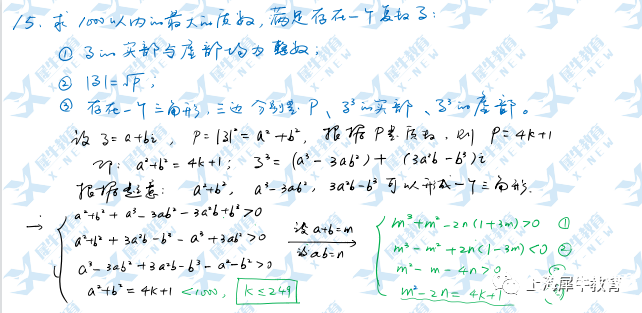 15. 求1000以内的最大的质数，满足存在一个复数z：
① z的实部与虚部均为整数；
② |z|=√p；
③ 存在一个三角形，三边分别是P、z³的实部、z³的虚部。
设z=a+bi，P=|z|²=a²+b²，根据P是质数，则 P=4k+1
即：a²+b²=4k+1；z³=(a³-3ab²)+(3a²b-b³)i
根据题意：a²+b²，a³-3ab²，3a²b-b³可以形成一个三角形.
→ a²+b²+a³-3ab²-3a²b+b³>0
a²+b²+3a²b-b³-a³+3ab²>0
a³-3ab²+3a²b-b³-a²-b²>0
a²+b²=4k+1<1000, k≤249
设a+b=m
设ab=n
m³+m²-2n(1+3m)>0 ①
m³-m²+2n(1-3m)<0 ②
m²-m-4n>0
m²-2n=4k+1
上海犀牛教育
犀牛教育
X·NEW